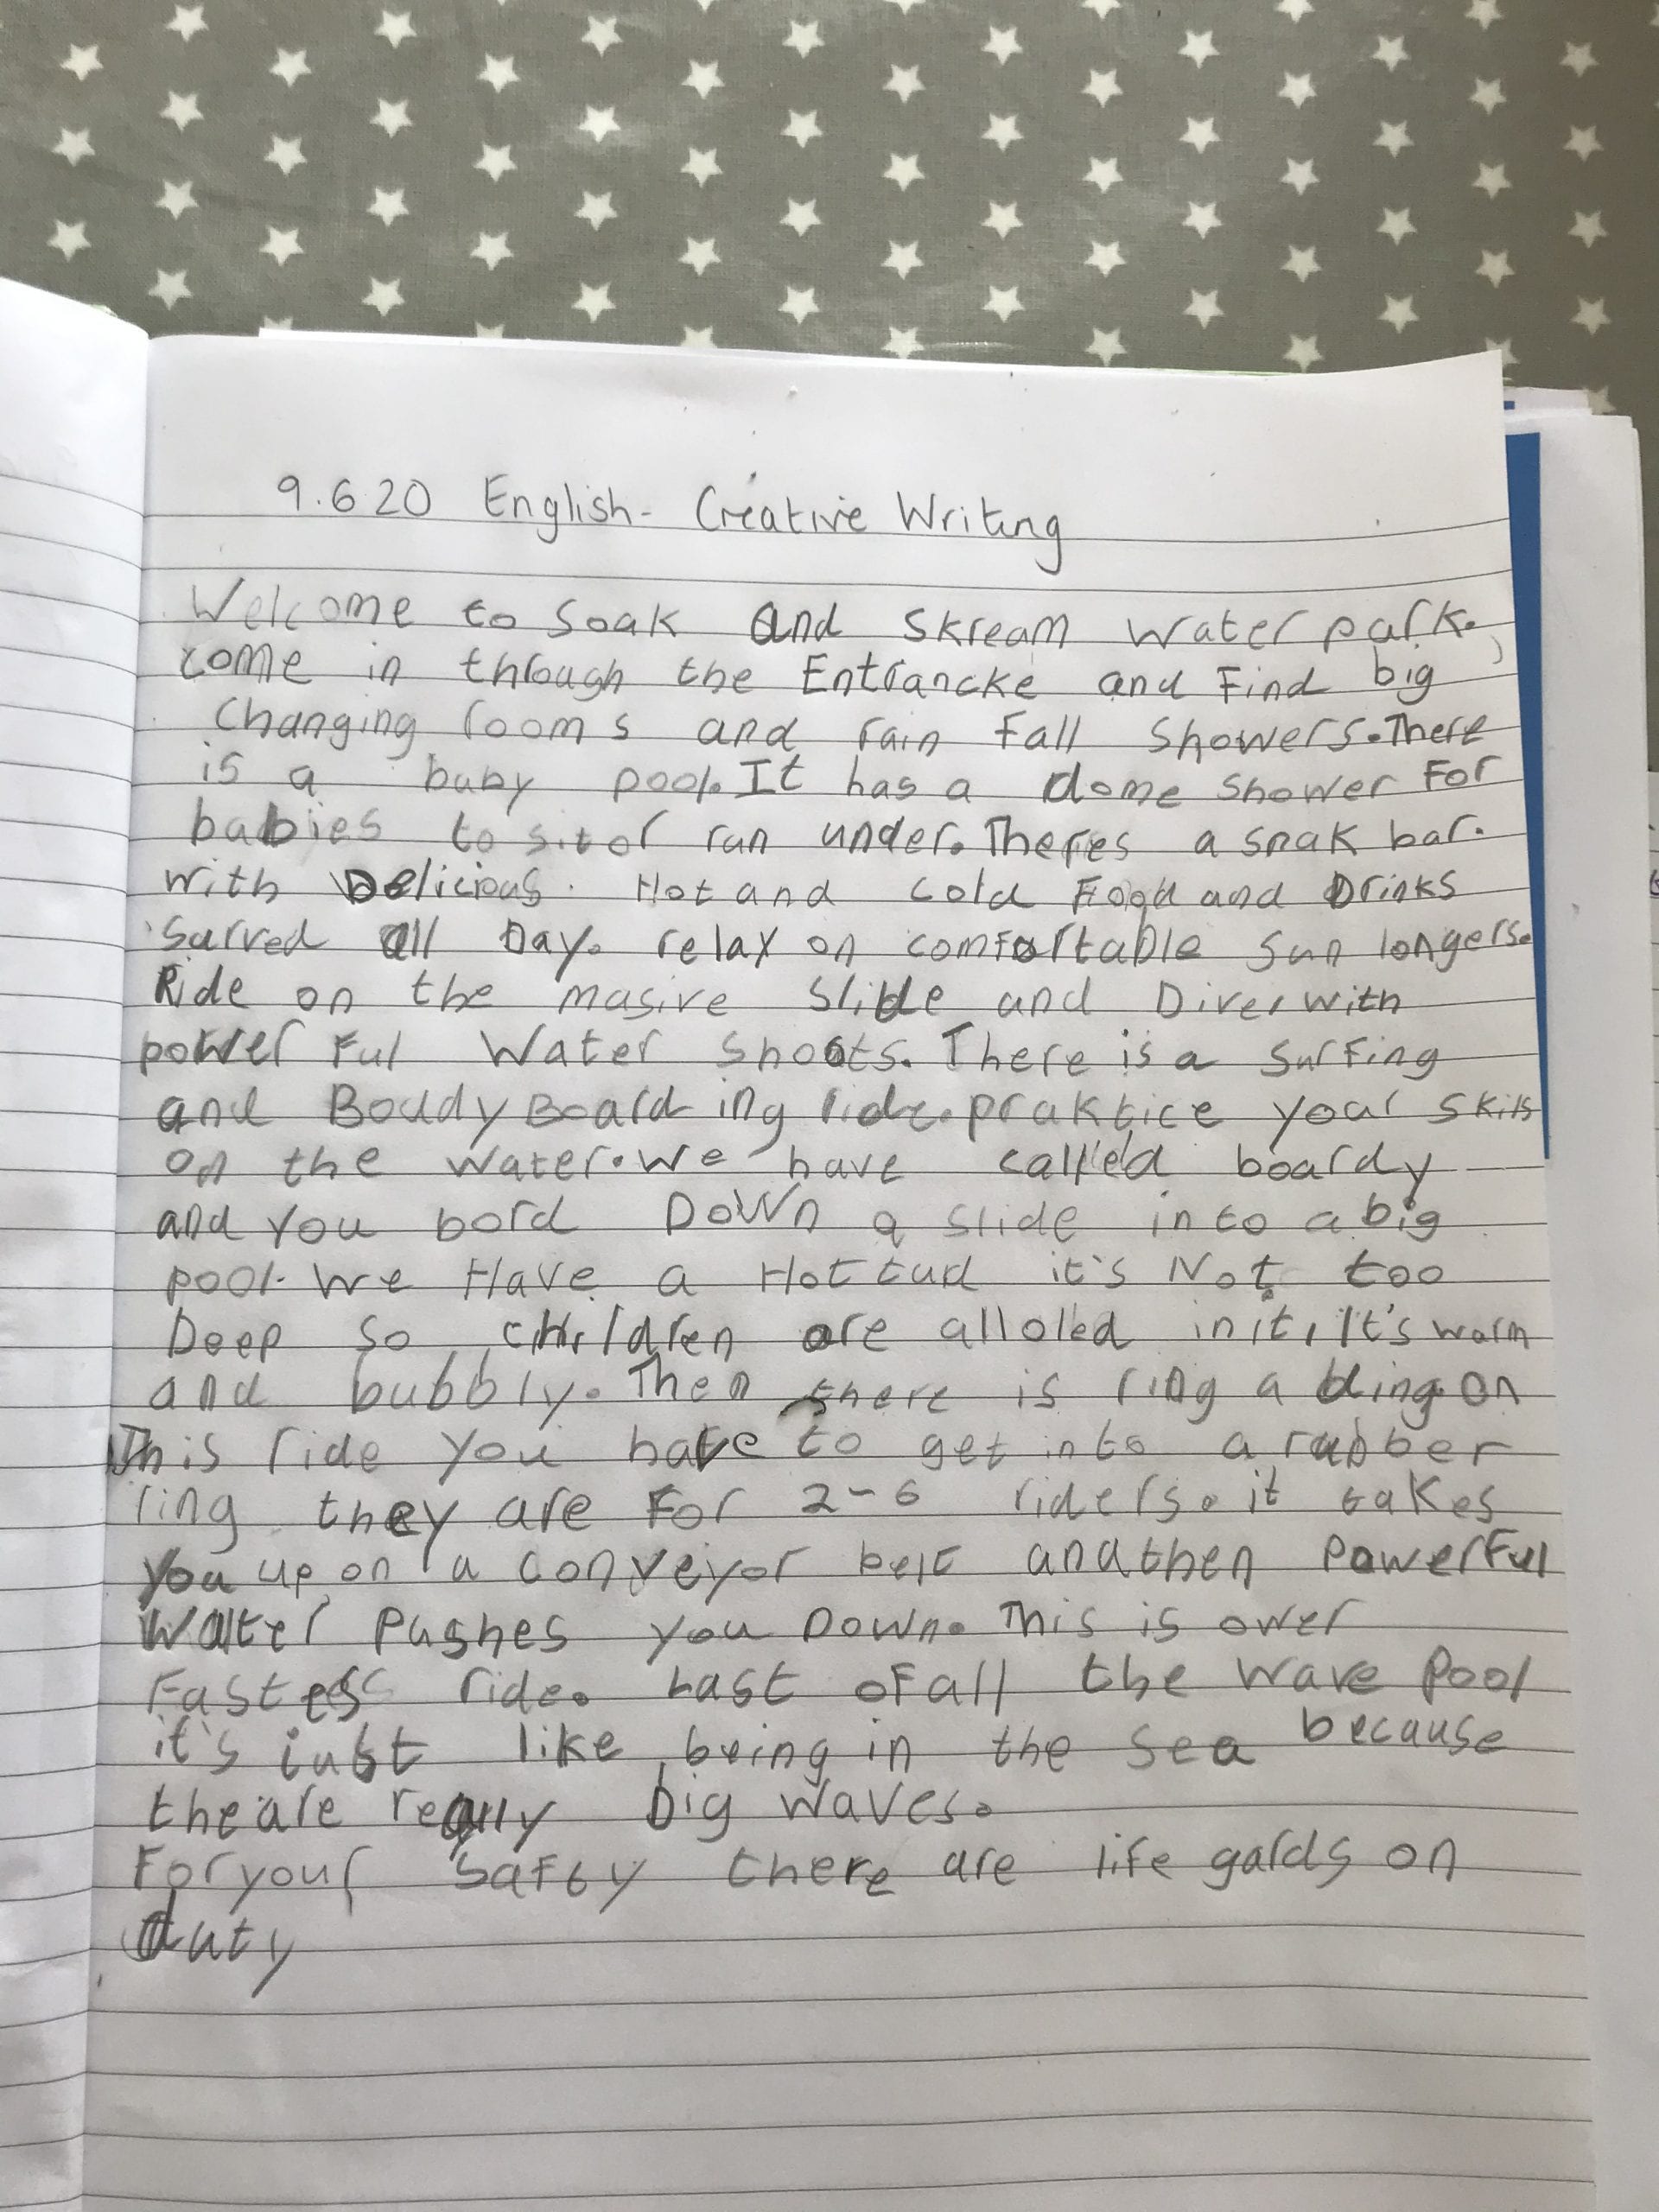 9.6.20 English - Creative Writing
Welcome to Soak and Skream Water park.
come in through the Entrancke and Find big
Changing rooms and rain Fall Showers. There
is a baby pool. It has a dome Shower For
babies to sit or run under. Theres a snak bar.
with Delicious Hot and cold Food and Drinks
Sarved all Day. relax on comfortable sun longers.
Ride on the masive Slide and Diver with
power Ful Water Shoots. There is a Surfing
and Bouddy Board ing ride. praktice your skils
on the water. We have called boardy
and you bord Down a slide into a big
pool. We Have a Hot tud it's Not too
Deep so children are alloled in it, It's warm
and bubbly. Then there is ring a ding. on
This ride you have to get into a rubber
ring they are For 2-6 riders. it takes
you up on a conveyor belt and then PowerFul
Water Pushes you Down. This is ower
Fastess ride. Last of all the Wave Pool
it's just like being in the sea because
theare really big Waves.
For your Safty there are life gards on
duty